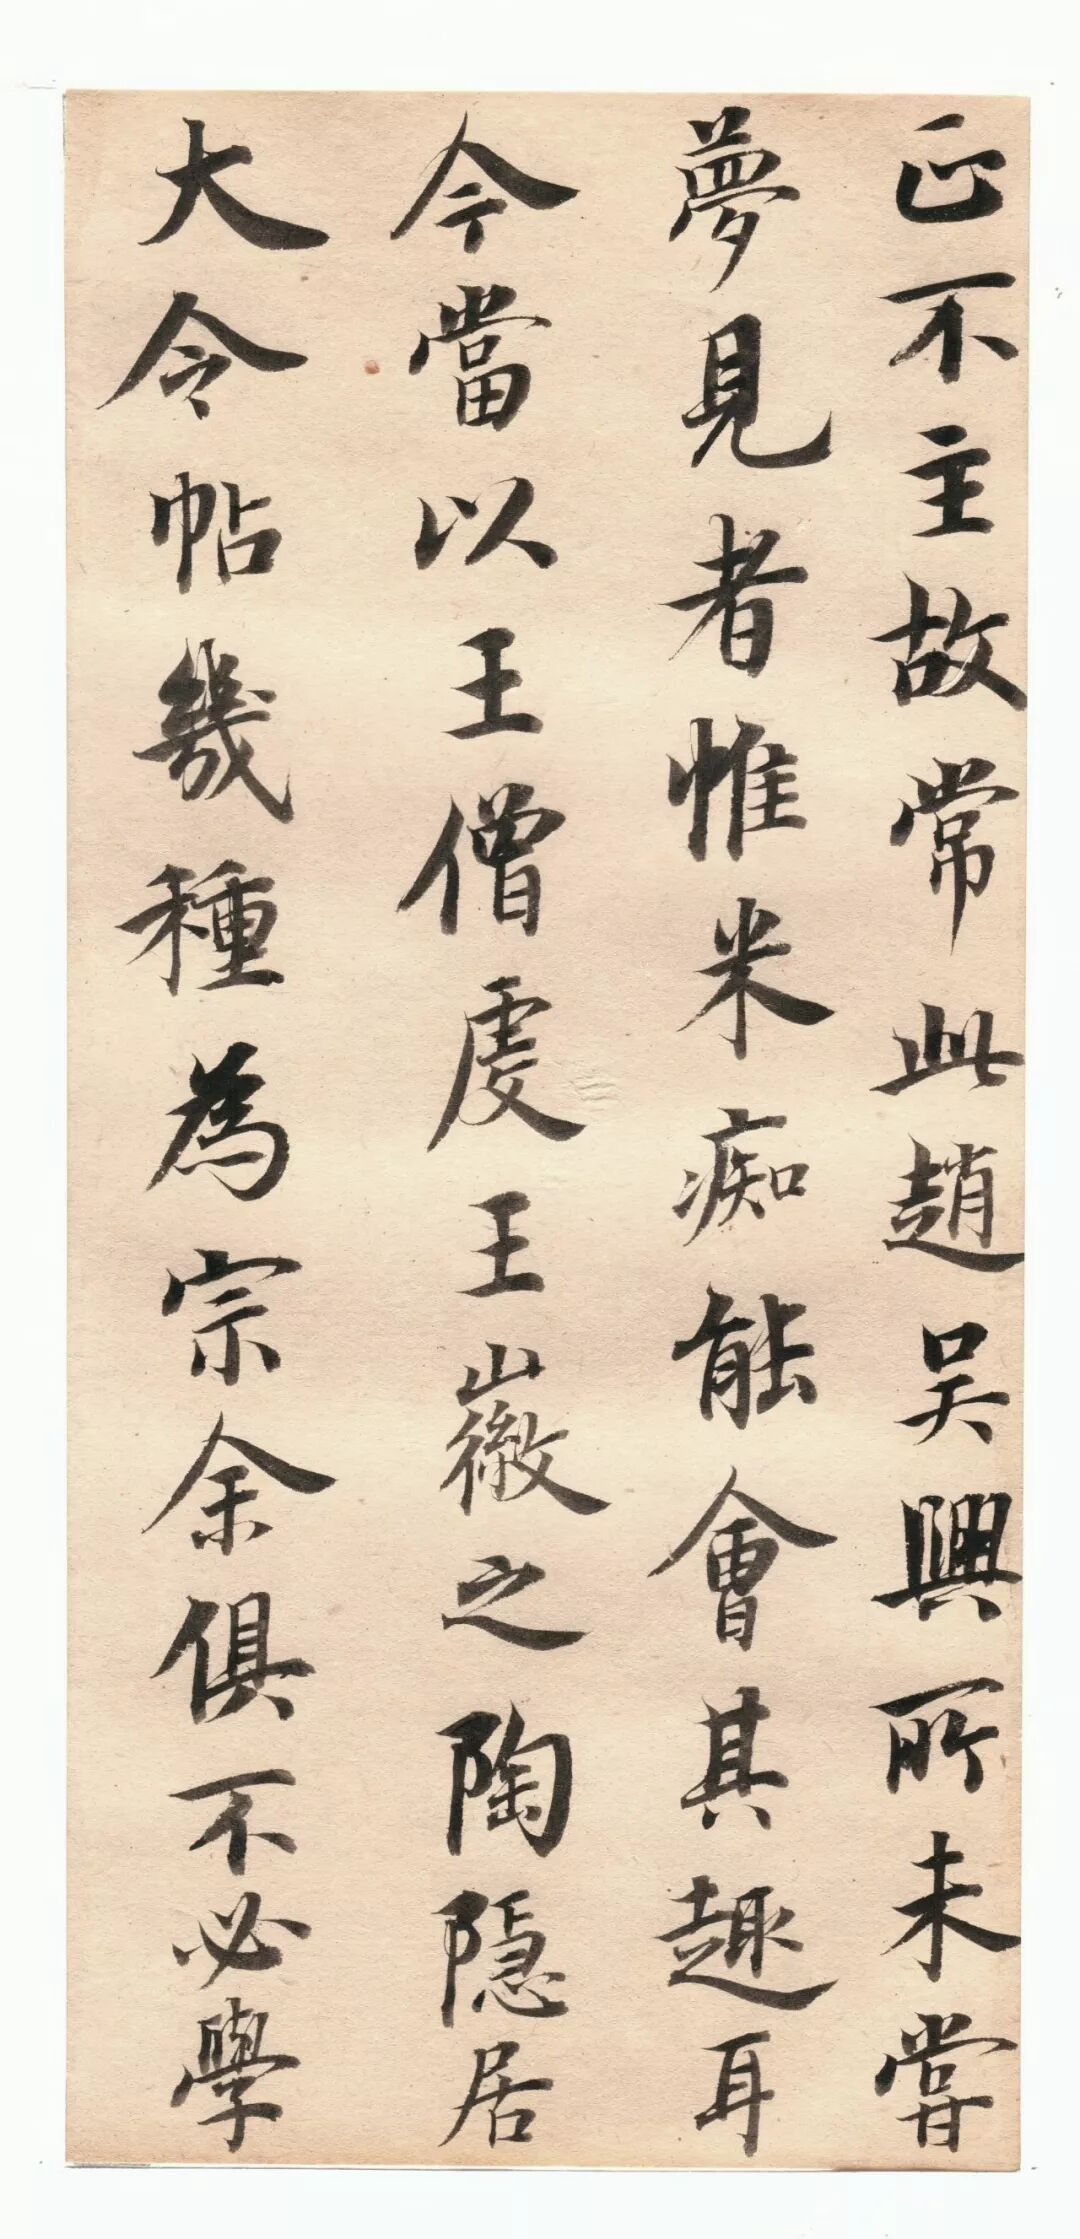 正不主故常此趙吴興所未嘗
夢見者惟米痴能會其趣耳
今當以王僧虔王徽之陶隱居
大令帖幾種為宗余俱不必學